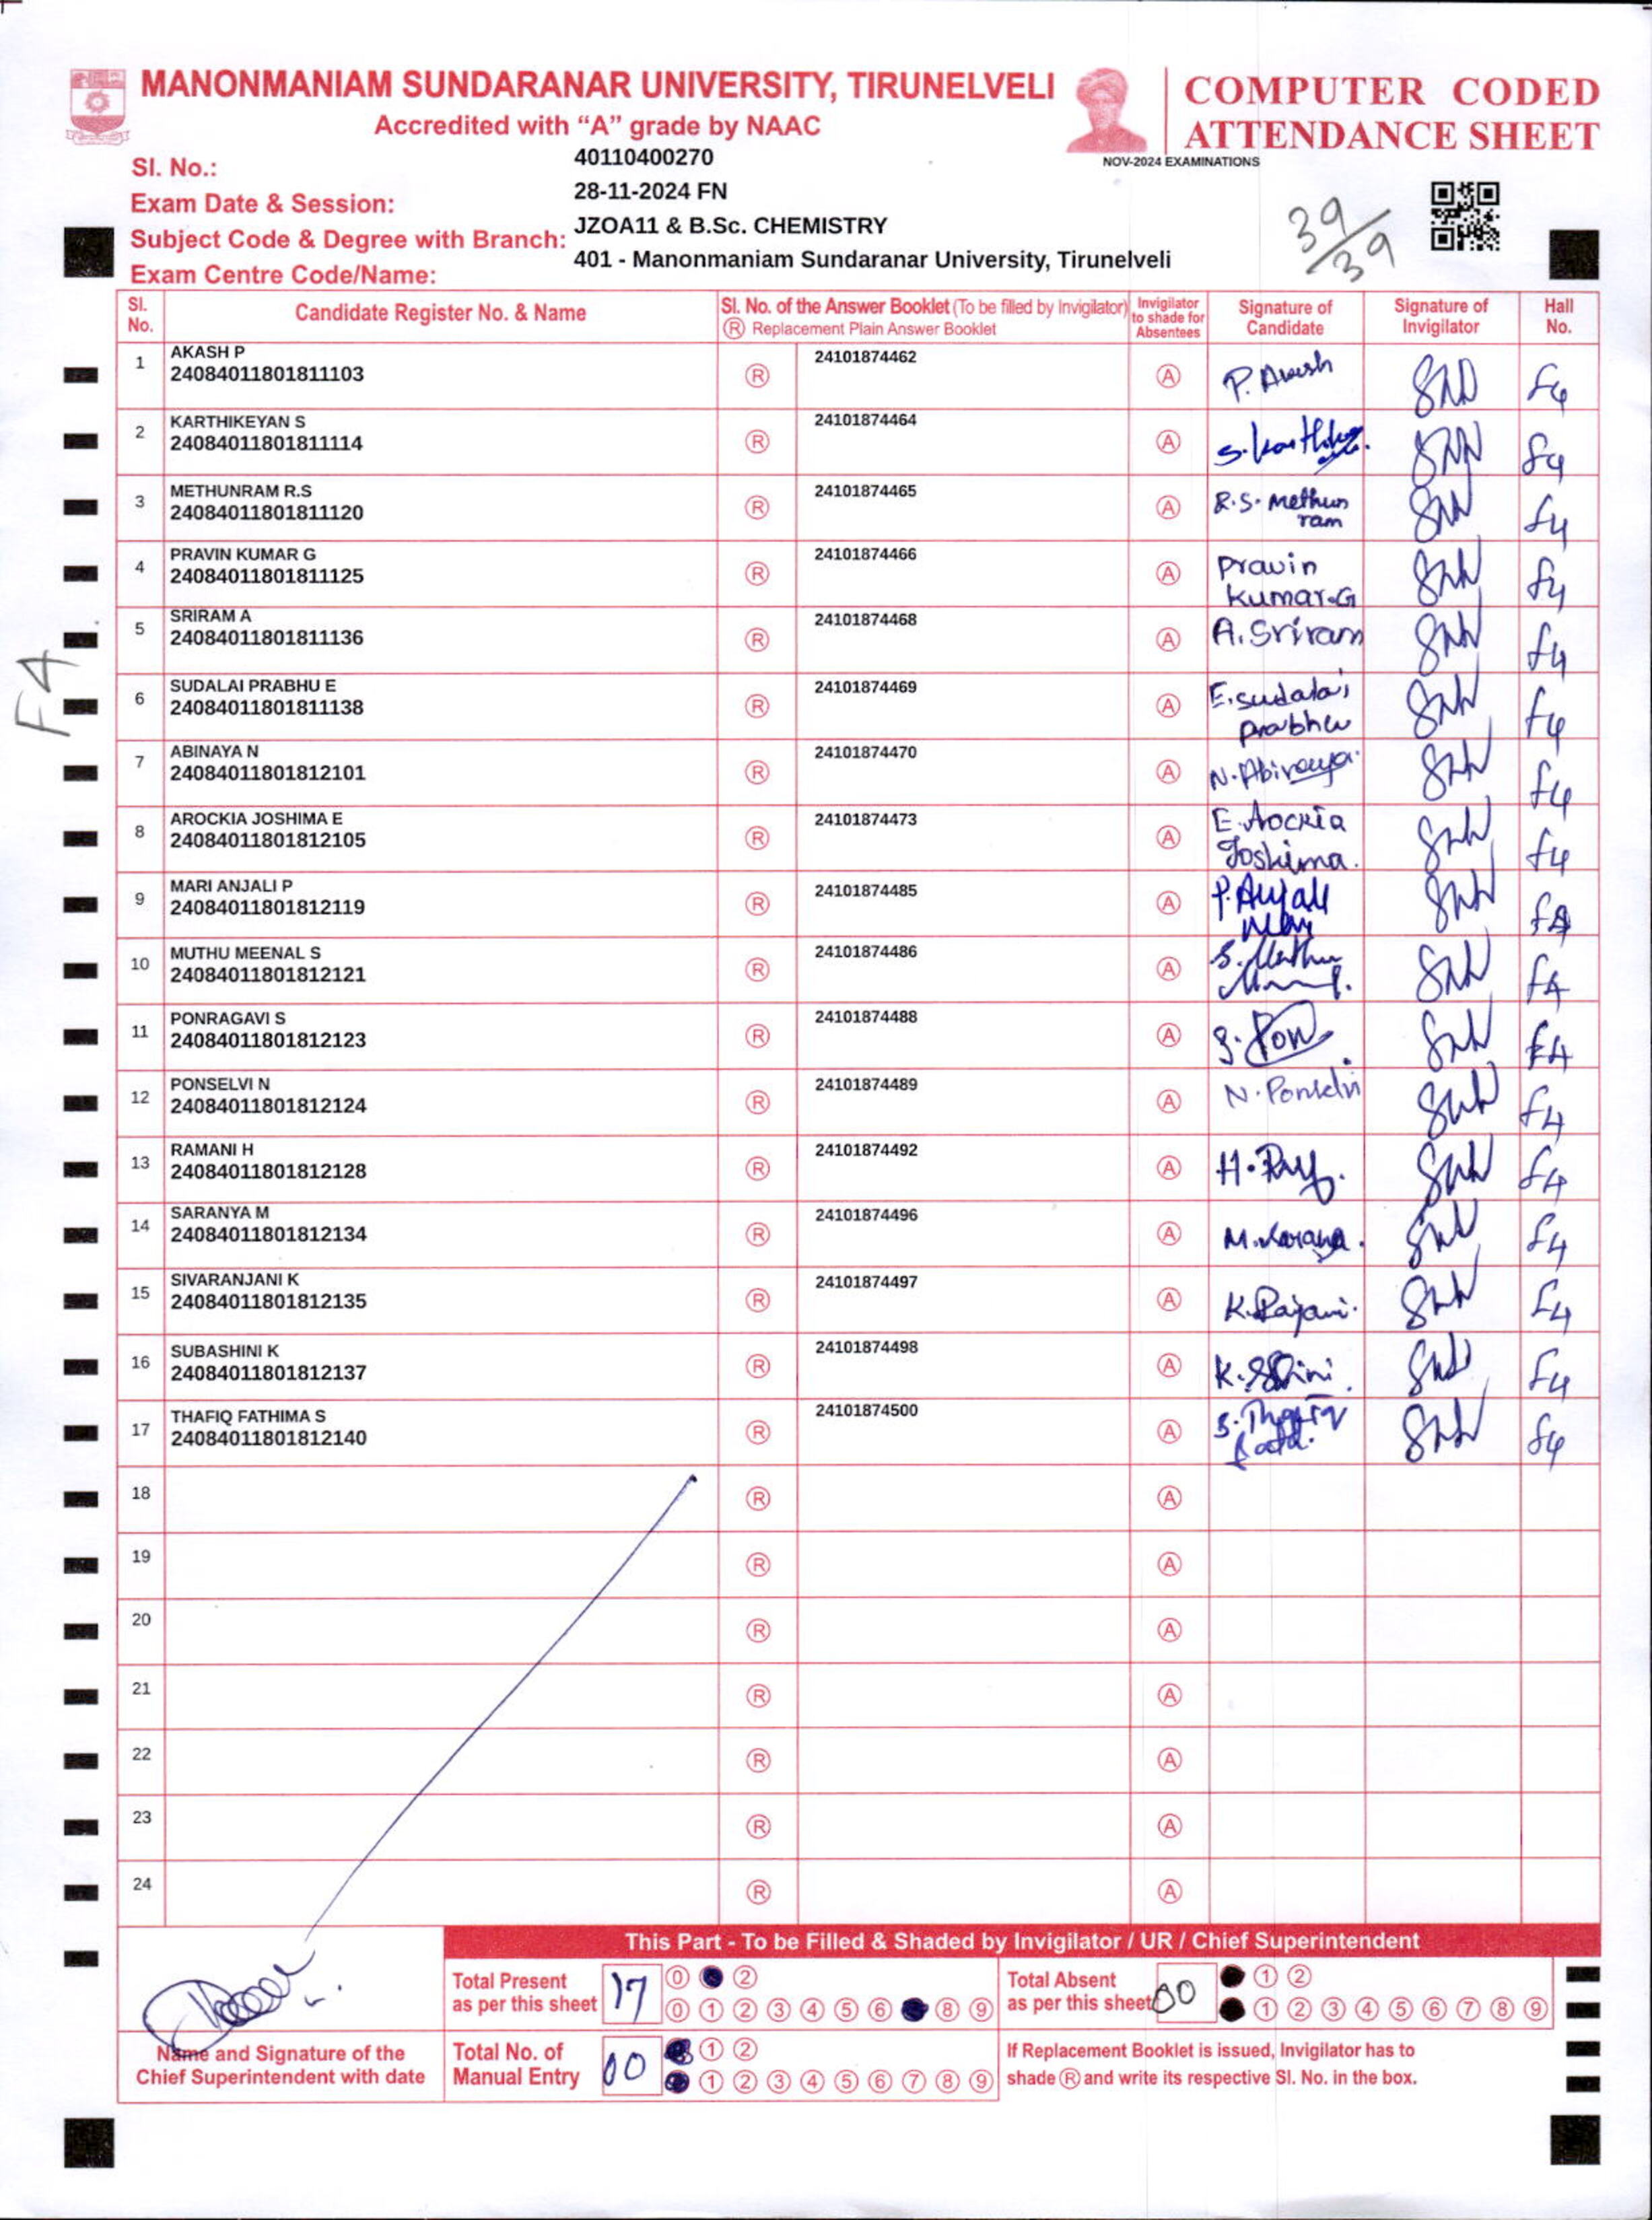 MANONMANIAM SUNDARANAR UNIVERSITY, TIRUNELVELI
Accredited with “A” grade by NAAC
COMPUTER CODED
ATTENDANCE SHEET
NOV-2024 EXAMINATIONS
Sl. No.: 40110400270
Exam Date & Session: 28-11-2024 FN
Subject Code & Degree with Branch: JZOA11 & B.Sc. CHEMISTRY
Exam Centre Code/Name: 401 - Manonmaniam Sundaranar University, Tirunelveli
39/39
F4
Sl. No. Candidate Register No. & Name Sl. No. of the Answer Booklet (To be filled by Invigilator) Ⓡ Replacement Plain Answer Booklet Invigilator to shade for Absentees Signature of Candidate Signature of Invigilator Hall No.
1 AKASH P 24101874462
24084011801811103 Ⓡ Ⓐ P. Akash F4
2 KARTHIKEYAN S 24101874464
24084011801811114 Ⓡ Ⓐ F4
3 METHUNRAM R.S 24101874465
24084011801811120 Ⓡ Ⓐ R.S. Methun ram F4
4 PRAVIN KUMAR G 24101874466
24084011801811125 Ⓡ Ⓐ Pravin Kumar.G F4
5 SRIRAM A 24101874468
24084011801811136 Ⓡ Ⓐ A. Sriram F4
6 SUDALAI PRABHU E 24101874469
24084011801811138 Ⓡ Ⓐ E. sudalai prabhu F4
7 ABINAYA N 24101874470
24084011801812101 Ⓡ Ⓐ N. Abinaya F4
8 AROCKIA JOSHIMA E 24101874473
24084011801812105 Ⓡ Ⓐ E. Arockia Joshima. F4
9 MARI ANJALI P 24101874485
24084011801812119 Ⓡ Ⓐ F4
10 MUTHU MEENAL S 24101874486
24084011801812121 Ⓡ Ⓐ S. Muthu F4
11 PONRAGAVI S 24101874488
24084011801812123 Ⓡ Ⓐ S. Pon F4
12 PONSELVI N 24101874489
24084011801812124 Ⓡ Ⓐ N. Ponselvi F4
13 RAMANI H 24101874492
24084011801812128 Ⓡ Ⓐ F4
14 SARANYA M 24101874496
24084011801812134 Ⓡ Ⓐ M. Saranya. F4
15 SIVARANJANI K 24101874497
24084011801812135 Ⓡ Ⓐ K. Rajani. F4
16 SUBASHINI K 24101874498
24084011801812137 Ⓡ Ⓐ F4
17 THAFIQ FATHIMA S 24101874500
24084011801812140 Ⓡ Ⓐ S. Thafiq F4
18 Ⓡ Ⓐ
19 Ⓡ Ⓐ
20 Ⓡ Ⓐ
21 Ⓡ Ⓐ
22 Ⓡ Ⓐ
23 Ⓡ Ⓐ
24 Ⓡ Ⓐ
This Part - To be Filled & Shaded by Invigilator / UR / Chief Superintendent
Total Present as per this sheet 17 ⓪ ②
⓪ ① ② ③ ④ ⑤ ⑥ ⑧ ⑨
Total Absent as per this sheet 00 ① ②
① ② ③ ④ ⑤ ⑥ ⑦ ⑧ ⑨
Name and Signature of the
Chief Superintendent with date
Total No. of Manual Entry 00 ① ②
① ② ③ ④ ⑤ ⑥ ⑦ ⑧ ⑨
If Replacement Booklet is issued, Invigilator has to
shade Ⓡ and write its respective Sl. No. in the box.